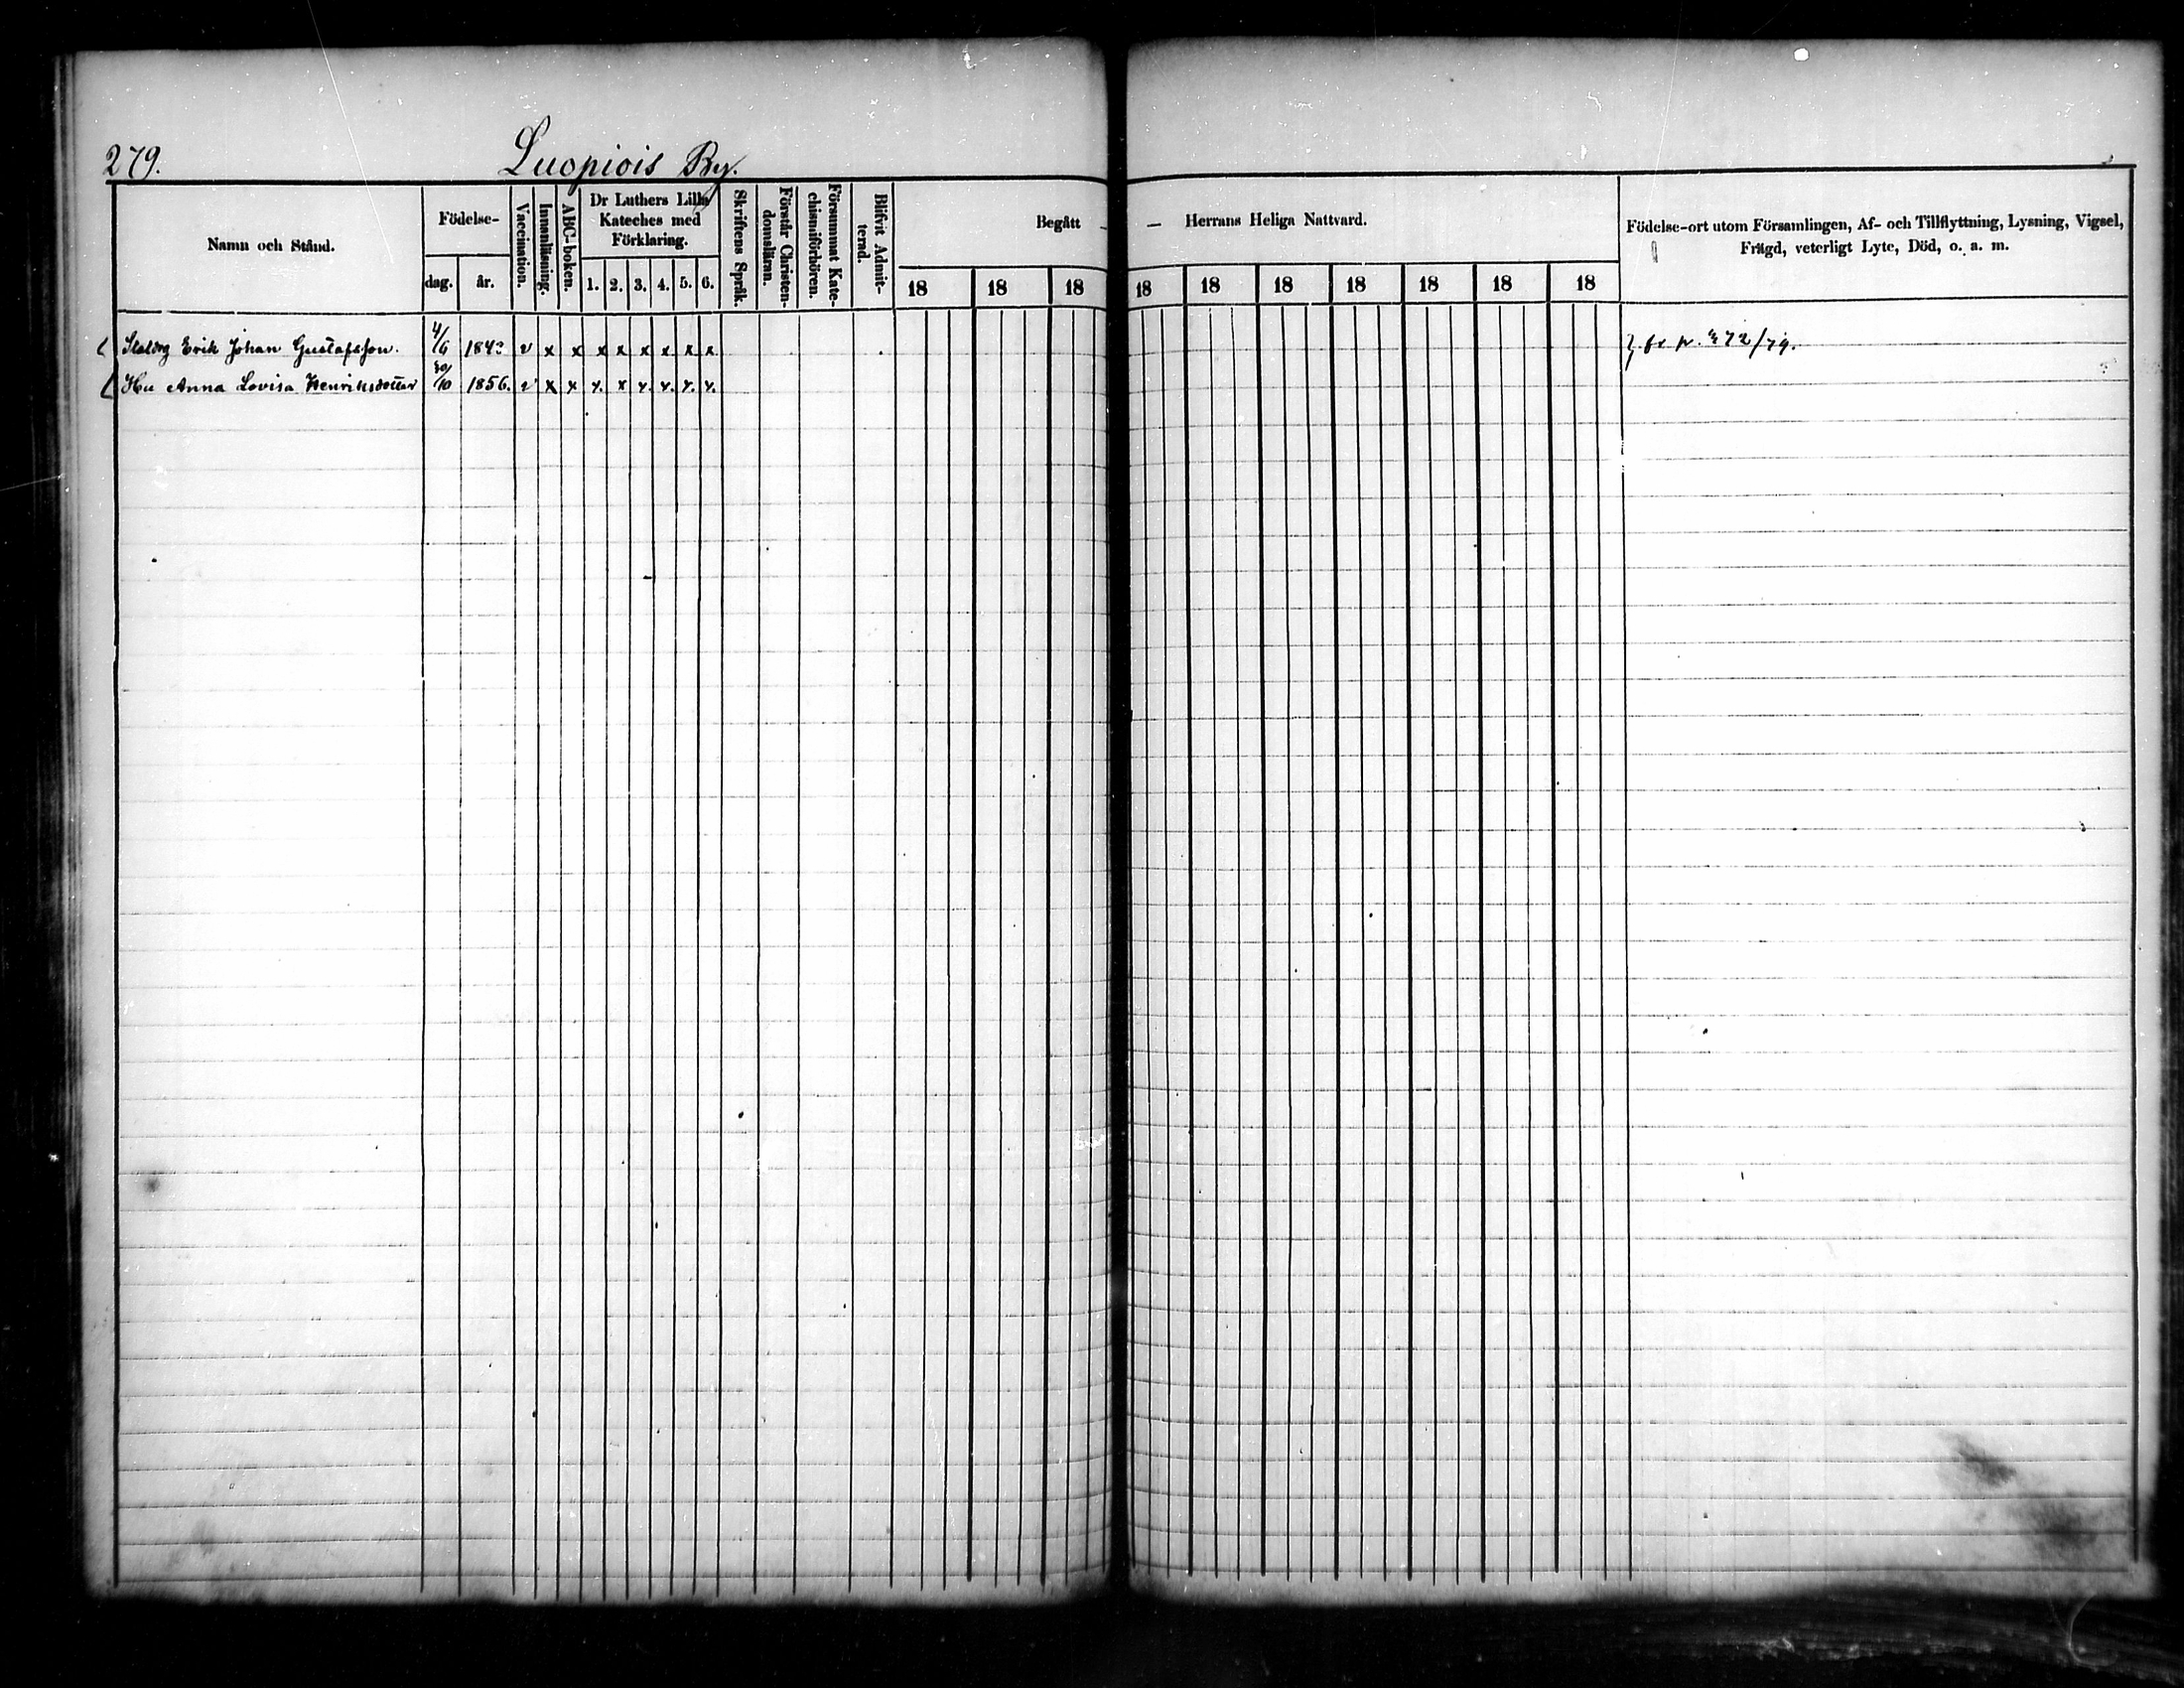 279.
Luopiois By.
Namn och Stånd.
Födelse-
dag.
år.
Vaccination.
Innanläsning.
ABC-boken.
Dr Luthers Lilla
Kateches med
Förklaring.
1. 2. 3. 4. 5. 6.
Skriftens Språk.
Förstår Christen-
domsläran.
Försummat Kate-
chismiförhören.
Blifvit Admit-
terad.
Begått — — Herrans Heliga Nattvard.
18 18 18 18 18 18 18 18 18 18
Födelse-ort utom Församlingen, Af- och Tillflyttning, Lysning, Vigsel,
Frägd, veterligt Lyte, Död, o. a. m.
Erik Johan Gustafsson. 4/6 v x x x x x x x x
Hu Anna Lovisa Henriksdotter 30/10 1856. v x x x. x x. x. x. x.